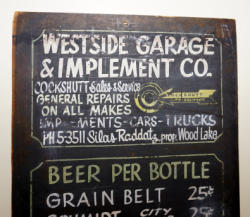 WESTSIDE GARAGE
& IMPLEMENT CO.
COCKSHUTT Sales & Service
GENERAL REPAIRS
ON ALL MAKES
COCKSHUTT
IMPLEMENTS-CARS-TRUCKS
PH 5-3511 Silas Raddatz, prop. Wood Lake
BEER PER BOTTLE
GRAIN BELT 25¢
SCHMIDT CITY 25¢